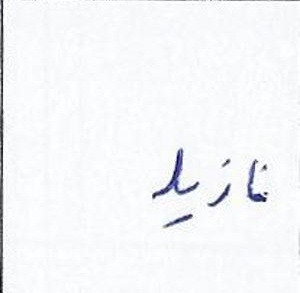 نازيلا